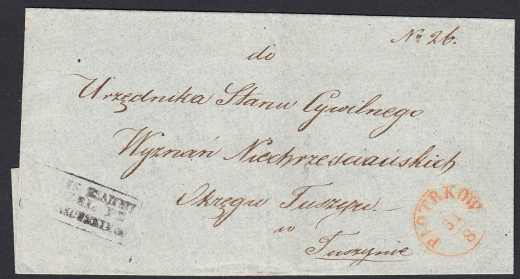 No 26.
do
Urzędnika Stanu Cywilnego
Wyznań Niechrześciańskich
Okręgu Tuszyn
w
Tuszynie
PIOTRKOW
31
8